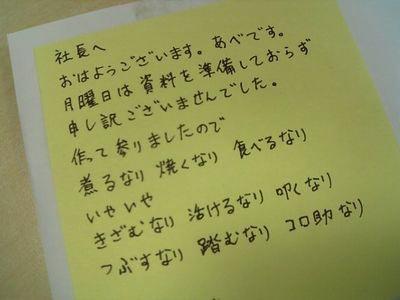 社長へ
おはようございます。あべです。
月曜日は資料を準備しておらず
申し訳ございませんでした。
作って参りましたので
煮るなり 焼くなり 食べるなり
いやいや
きざむなり 活けるなり 叩くなり
つぶすなり 踏むなり コロ助なり